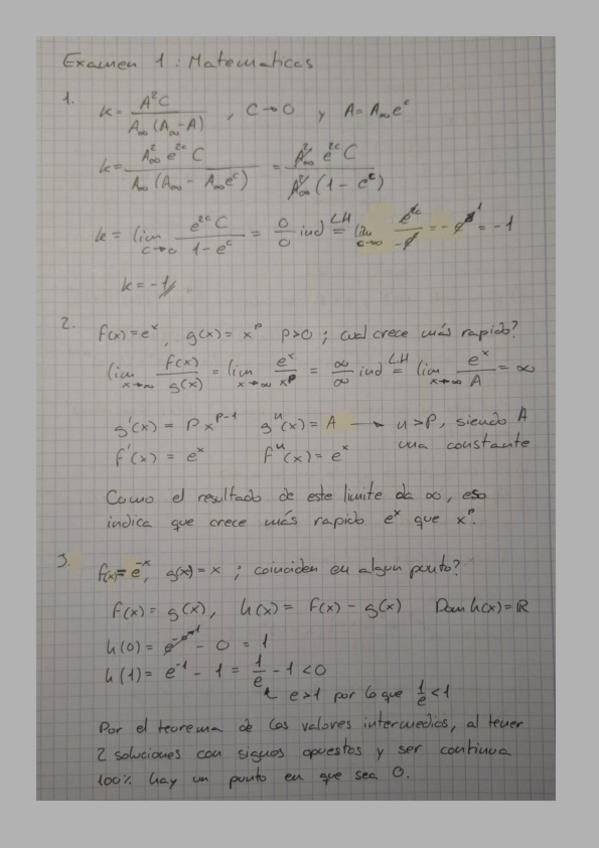 Examen 1: Matematicas
1. k = A²C / A∞(A∞-A) , C→0 y A = A∞e^c
k = A∞² e^2c C / A∞(A∞ - A∞e^c) = A∞² e^2c C / A∞²(1 - e^c)
k = lim c→0 e^2c C / 1 - e^c = 0/0 ind LH= lim c→0 e^2c / -e^c = - e^c = -1
k = -1//
2. f(x) = e^x, g(x) = x^p p>0 ; cual crece más rapido?
lim x→∞ f(x)/g(x) = lim x→∞ e^x/x^p = ∞/∞ ind LH= lim x→∞ e^x/A = ∞
g'(x) = P x^p-1 g^n(x) = A → n>p, siendo A
f'(x) = e^x f^n(x) = e^x una constante
Como el resultado de este limite da ∞, eso
indica que crece más rapido e^x que x^p.
3. f(x) = e^-x, g(x) = x ; coinciden en algun punto?
f(x) = g(x), h(x) = f(x) - g(x) Dom h(x) = ℝ
h(0) = e^-0 1 - 0 = 1
h(1) = e^-1 - 1 = 1/e - 1 < 0
e>1 por lo que 1/e < 1
Por el teorema de los valores intermedios, al tener
2 soluciones con signos opuestos y ser continua
100% hay un punto en que sea 0.